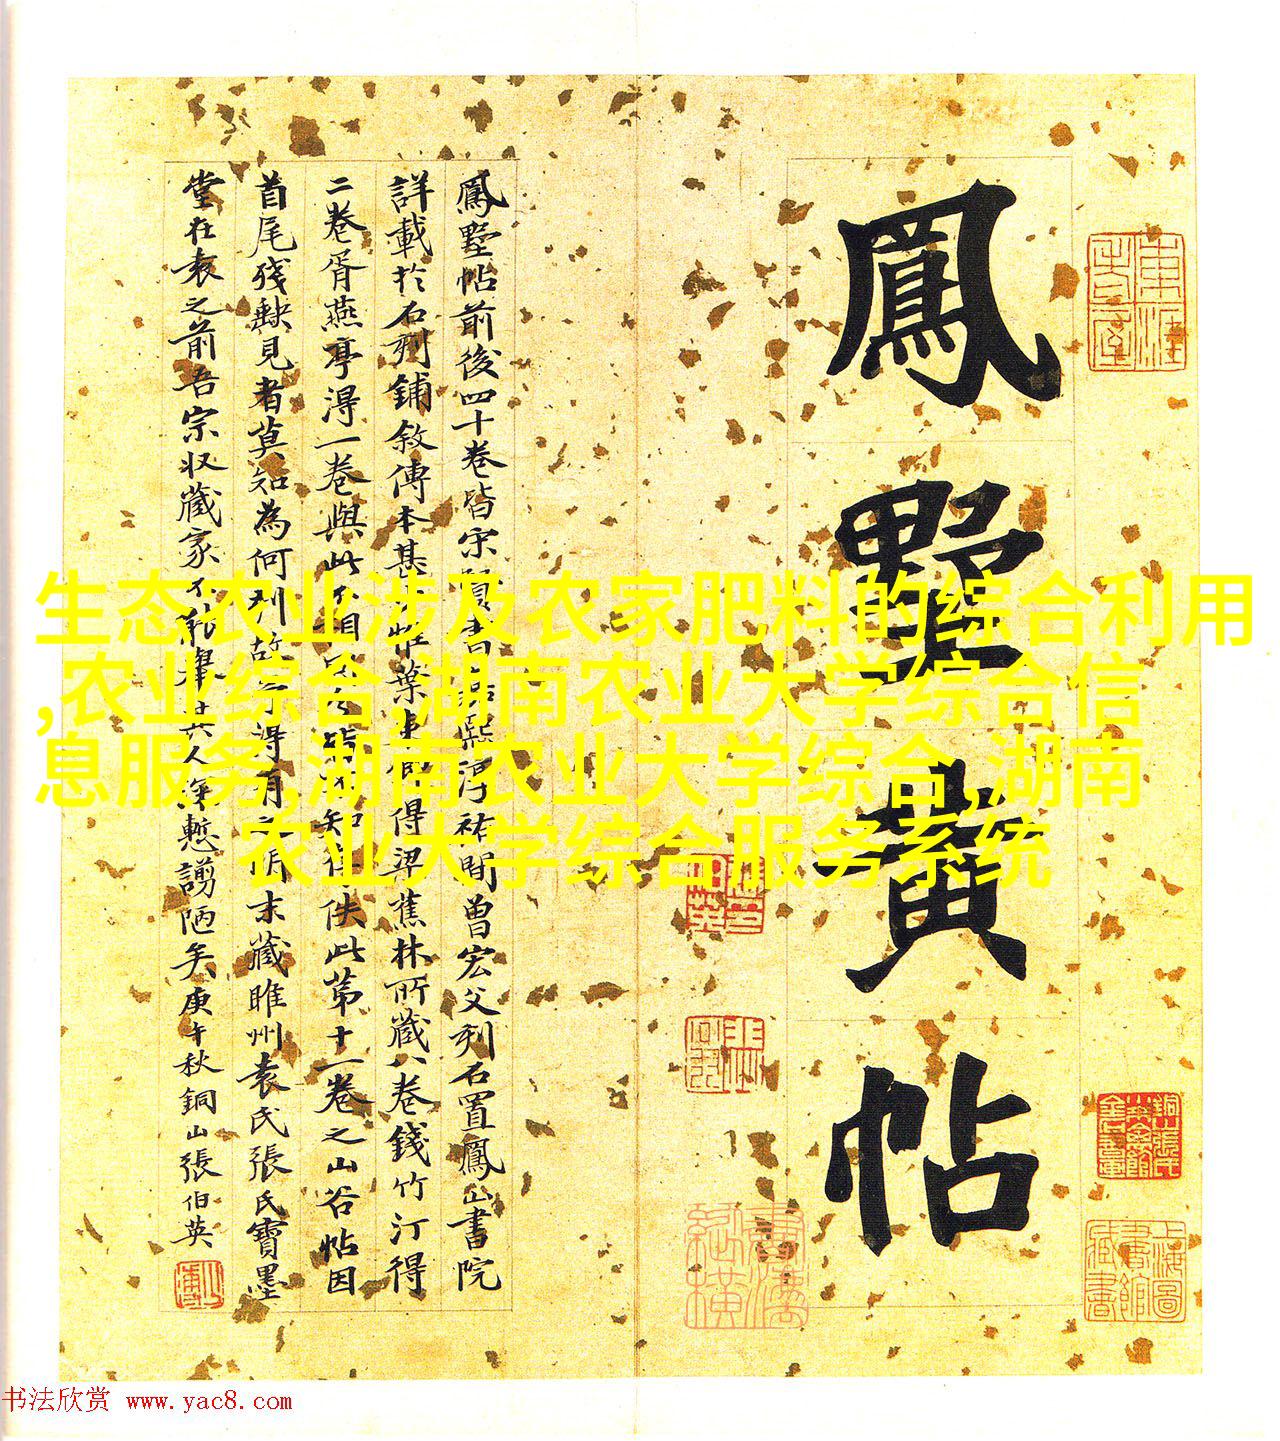 鳳墅黃帖
鳳墅帖前後四十卷皆宋曾書嘉熙淳祐間曾宏父刋石置鳳山書院
詳載於石刻鋪敘傳本甚惟葉東卿得梁蕉林所藏八卷錢竹汀得
二卷胥燕亭淂一卷與此不相知佚此第十一卷之山谷帖因
首尾殘缺見者莫知為何刋故淂有之明末藏睢州袁氏張氏寶墨
堂在袁之前吾宗収藏家不能舉其人深慙謭陋矣庚午秋銅山張伯英
生态农业涉及农家肥料的综合利用
,农业综合,湖南农业大学综合信
息服务,湖南农业大学综合,湖南
农业大学综合服务系统
上海圖書館藏書
书法欣赏 www.yac8.com